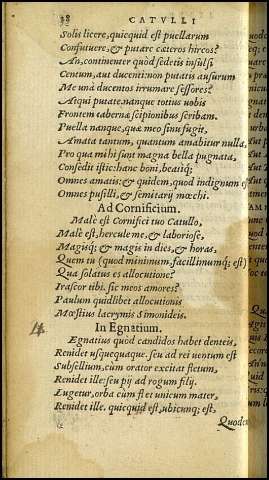 38 CATVLLI
Solis licere, quicquid est puellarum
Confutuere, & putare cæteros hircos?
An, continenter quòd sedetis insulsi
Centum, aut ducenti: non putatis ausurum
Me unà ducentos irrumare sessores?
Atqui putate. nanque totius uobis
Frontem tabernæ scipionibus scribam.
Puella nanque, quæ meo sinu fugit,
Amata tantum, quantum amabitur nulla,
Pro qua mihi sunt magna bella pugnata,
Consedit istic: hanc boni, beatiq;
Omnes amatis: & quidem, quod indignum est
Omnes pusilli, & semitarij mœchi.
Ad Cornificium.
Malè est Cornifici tuo Catullo,
Malè est, hercule me, & laboriosè,
Magisq; & magis in dies, & horas,
Quem tu (quod minimum, facillimumq; est)
Qua solatus es allocutione?
Irascor tibi. sic meos amores?
Paulum quidlibet allocutionis
Mœstius lacrymis Simonideis.
In Egnatium.
Egnatius quòd candidos habet denteis,
Renidet usquequaque. seu ad rei uentum est
Subsellium, cùm orator excitat fletum,
Renidet ille: seu pij ad rogum filij.
Lugetur, orba cùm flet unicum mater,
Renidet ille. quicquid est, ubicunq; est,
Quodcu